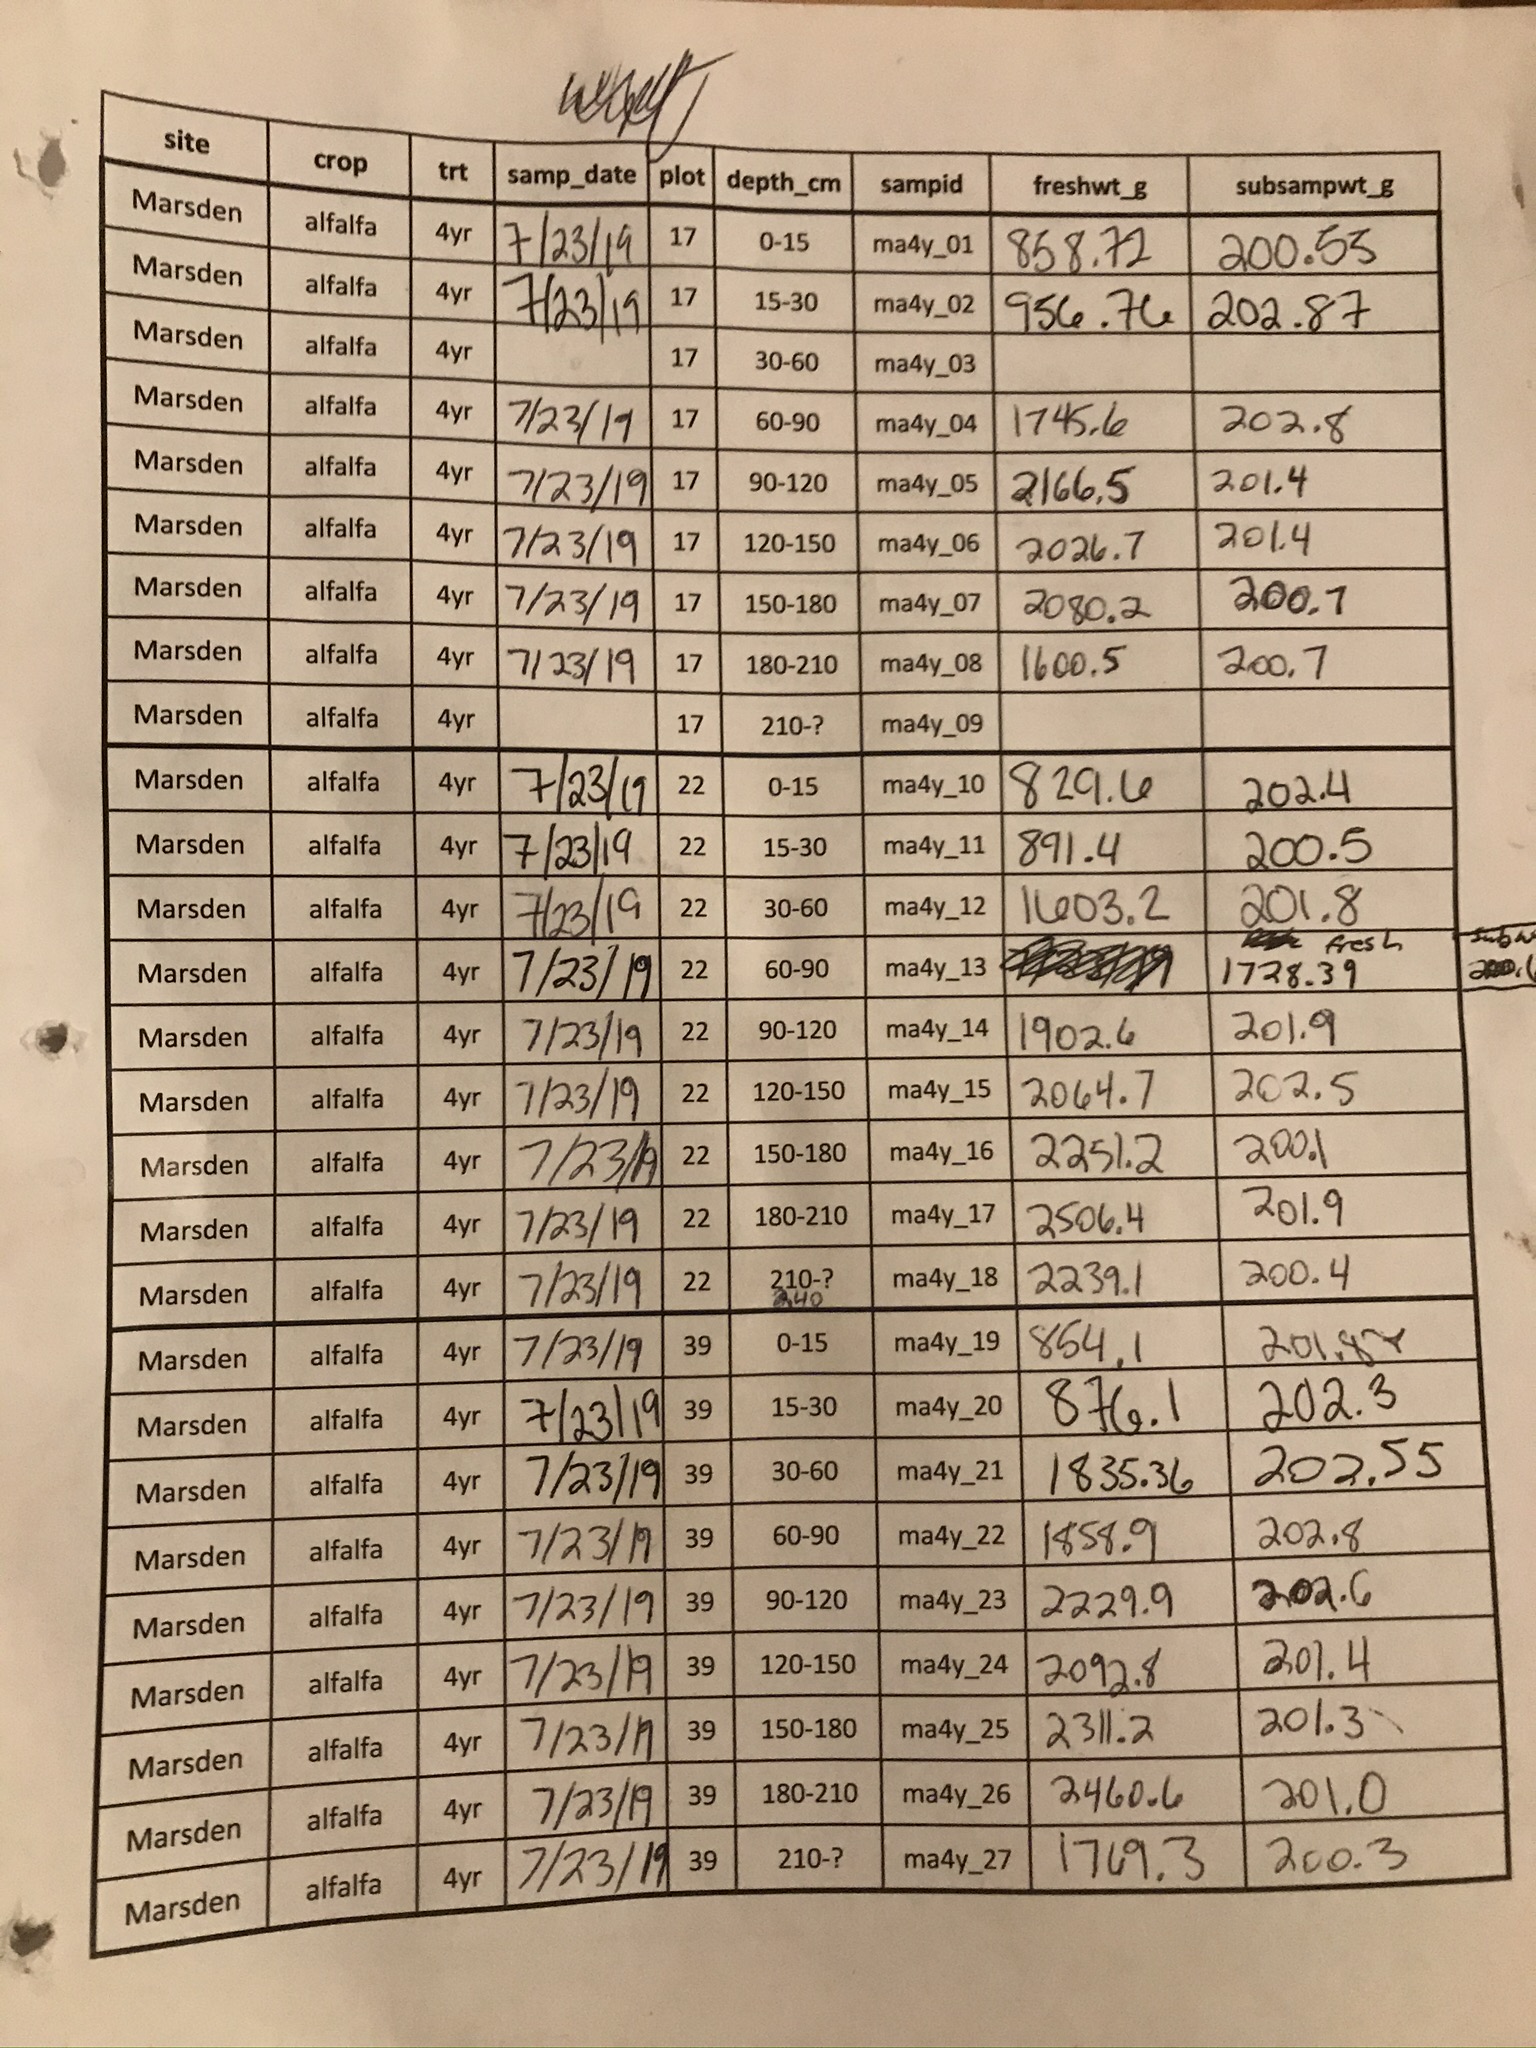 site crop trt samp_date plot depth_cm sampid freshwt_g subsampwt_g
Marsden alfalfa 4yr 7/23/19 17 0-15 ma4y_01 858.72 200.55
Marsden alfalfa 4yr 7/23/19 17 15-30 ma4y_02 956.76 202.87
Marsden alfalfa 4yr 17 30-60 ma4y_03
Marsden alfalfa 4yr 7/23/19 17 60-90 ma4y_04 1745.6 202.8
Marsden alfalfa 4yr 7/23/19 17 90-120 ma4y_05 2166.5 201.4
Marsden alfalfa 4yr 7/23/19 17 120-150 ma4y_06 2026.7 201.4
Marsden alfalfa 4yr 7/23/19 17 150-180 ma4y_07 2080.2 200.7
Marsden alfalfa 4yr 7/23/19 17 180-210 ma4y_08 1600.5 200.7
Marsden alfalfa 4yr 17 210-? ma4y_09
Marsden alfalfa 4yr 7/23/19 22 0-15 ma4y_10 829.6 202.4
Marsden alfalfa 4yr 7/23/19 22 15-30 ma4y_11 891.4 200.5
Marsden alfalfa 4yr 7/23/19 22 30-60 ma4y_12 1603.2 201.8
fresh
Marsden alfalfa 4yr 7/23/19 22 60-90 ma4y_13 1728.39
Marsden alfalfa 4yr 7/23/19 22 90-120 ma4y_14 1902.6 201.9
Marsden alfalfa 4yr 7/23/19 22 120-150 ma4y_15 2064.7 202.5
Marsden alfalfa 4yr 7/23/19 22 150-180 ma4y_16 2251.2 200.1
Marsden alfalfa 4yr 7/23/19 22 180-210 ma4y_17 2506.4 201.9
Marsden alfalfa 4yr 7/23/19 22 210-? ma4y_18 2239.1 200.4
240
Marsden alfalfa 4yr 7/23/19 39 0-15 ma4y_19 854.1
Marsden alfalfa 4yr 7/23/19 39 15-30 ma4y_20 876.1 202.3
Marsden alfalfa 4yr 7/23/19 39 30-60 ma4y_21 1835.36 202.55
Marsden alfalfa 4yr 7/23/19 39 60-90 ma4y_22 1858.9 202.8
Marsden alfalfa 4yr 7/23/19 39 90-120 ma4y_23 2229.9 202.6
Marsden alfalfa 4yr 7/23/19 39 120-150 ma4y_24 2092.8 201.4
Marsden alfalfa 4yr 7/23/19 39 150-180 ma4y_25 2311.2 201.3
Marsden alfalfa 4yr 7/23/19 39 180-210 ma4y_26 2460.6 201.0
Marsden alfalfa 4yr 7/23/19 39 210-? ma4y_27 1769.3 200.3